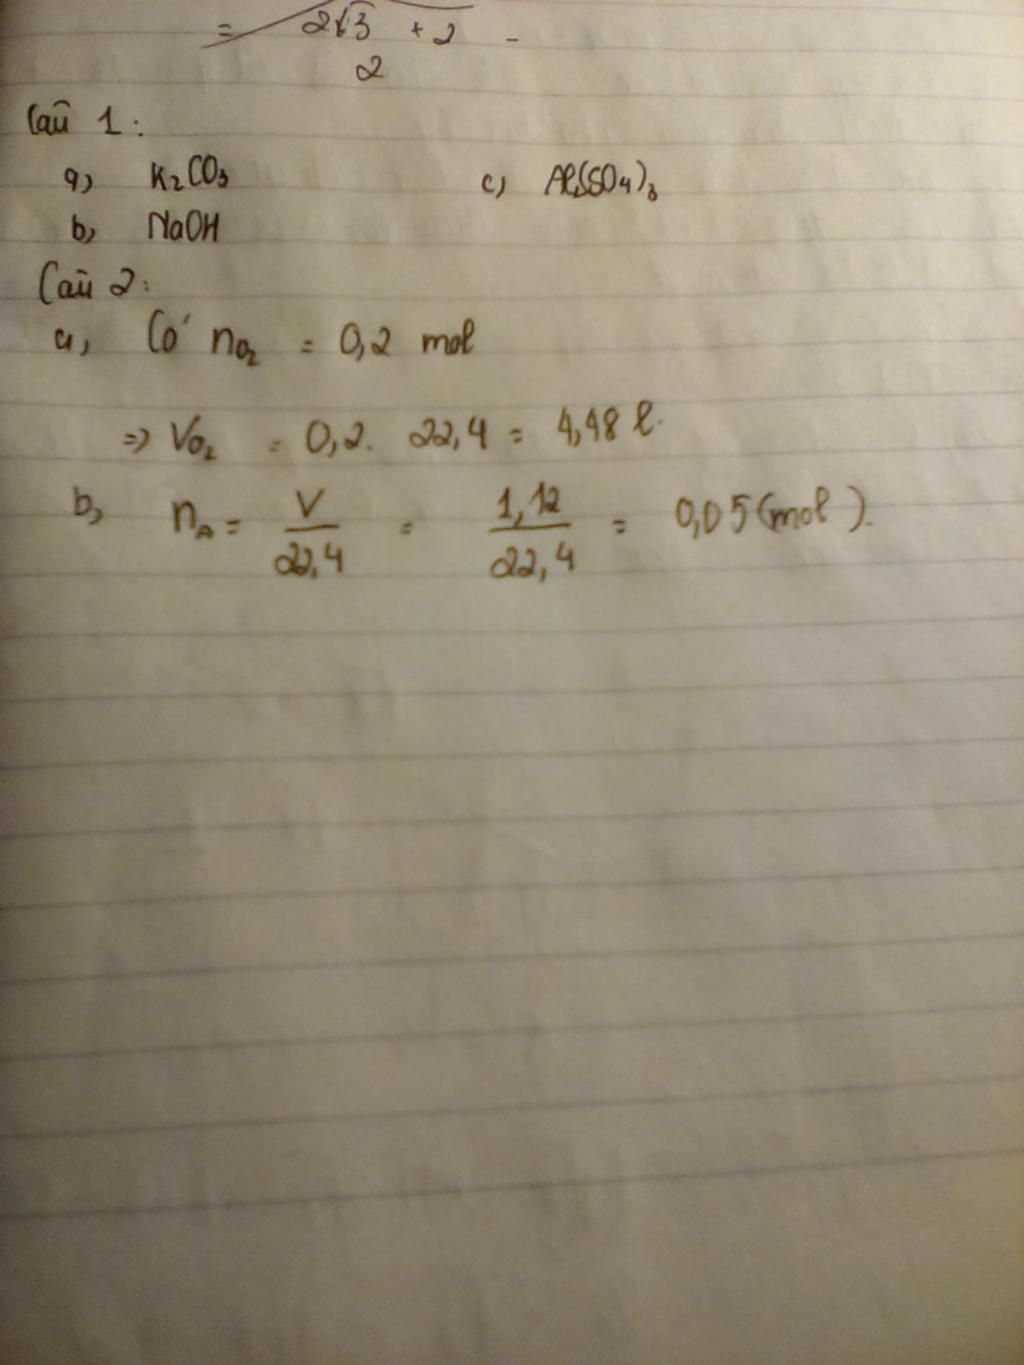 = 2√3 + 2 -
2
Câu 1:
a, K₂CO₃ c, Al₂(SO₄)₃
b, NaOH
Câu 2:
a, Có nO₂ = 0,2 mol
=> VO₂ = 0,2. 22,4 = 4,48 l.
b, nA = V/22,4 = 1,12/22,4 = 0,05 (mol).